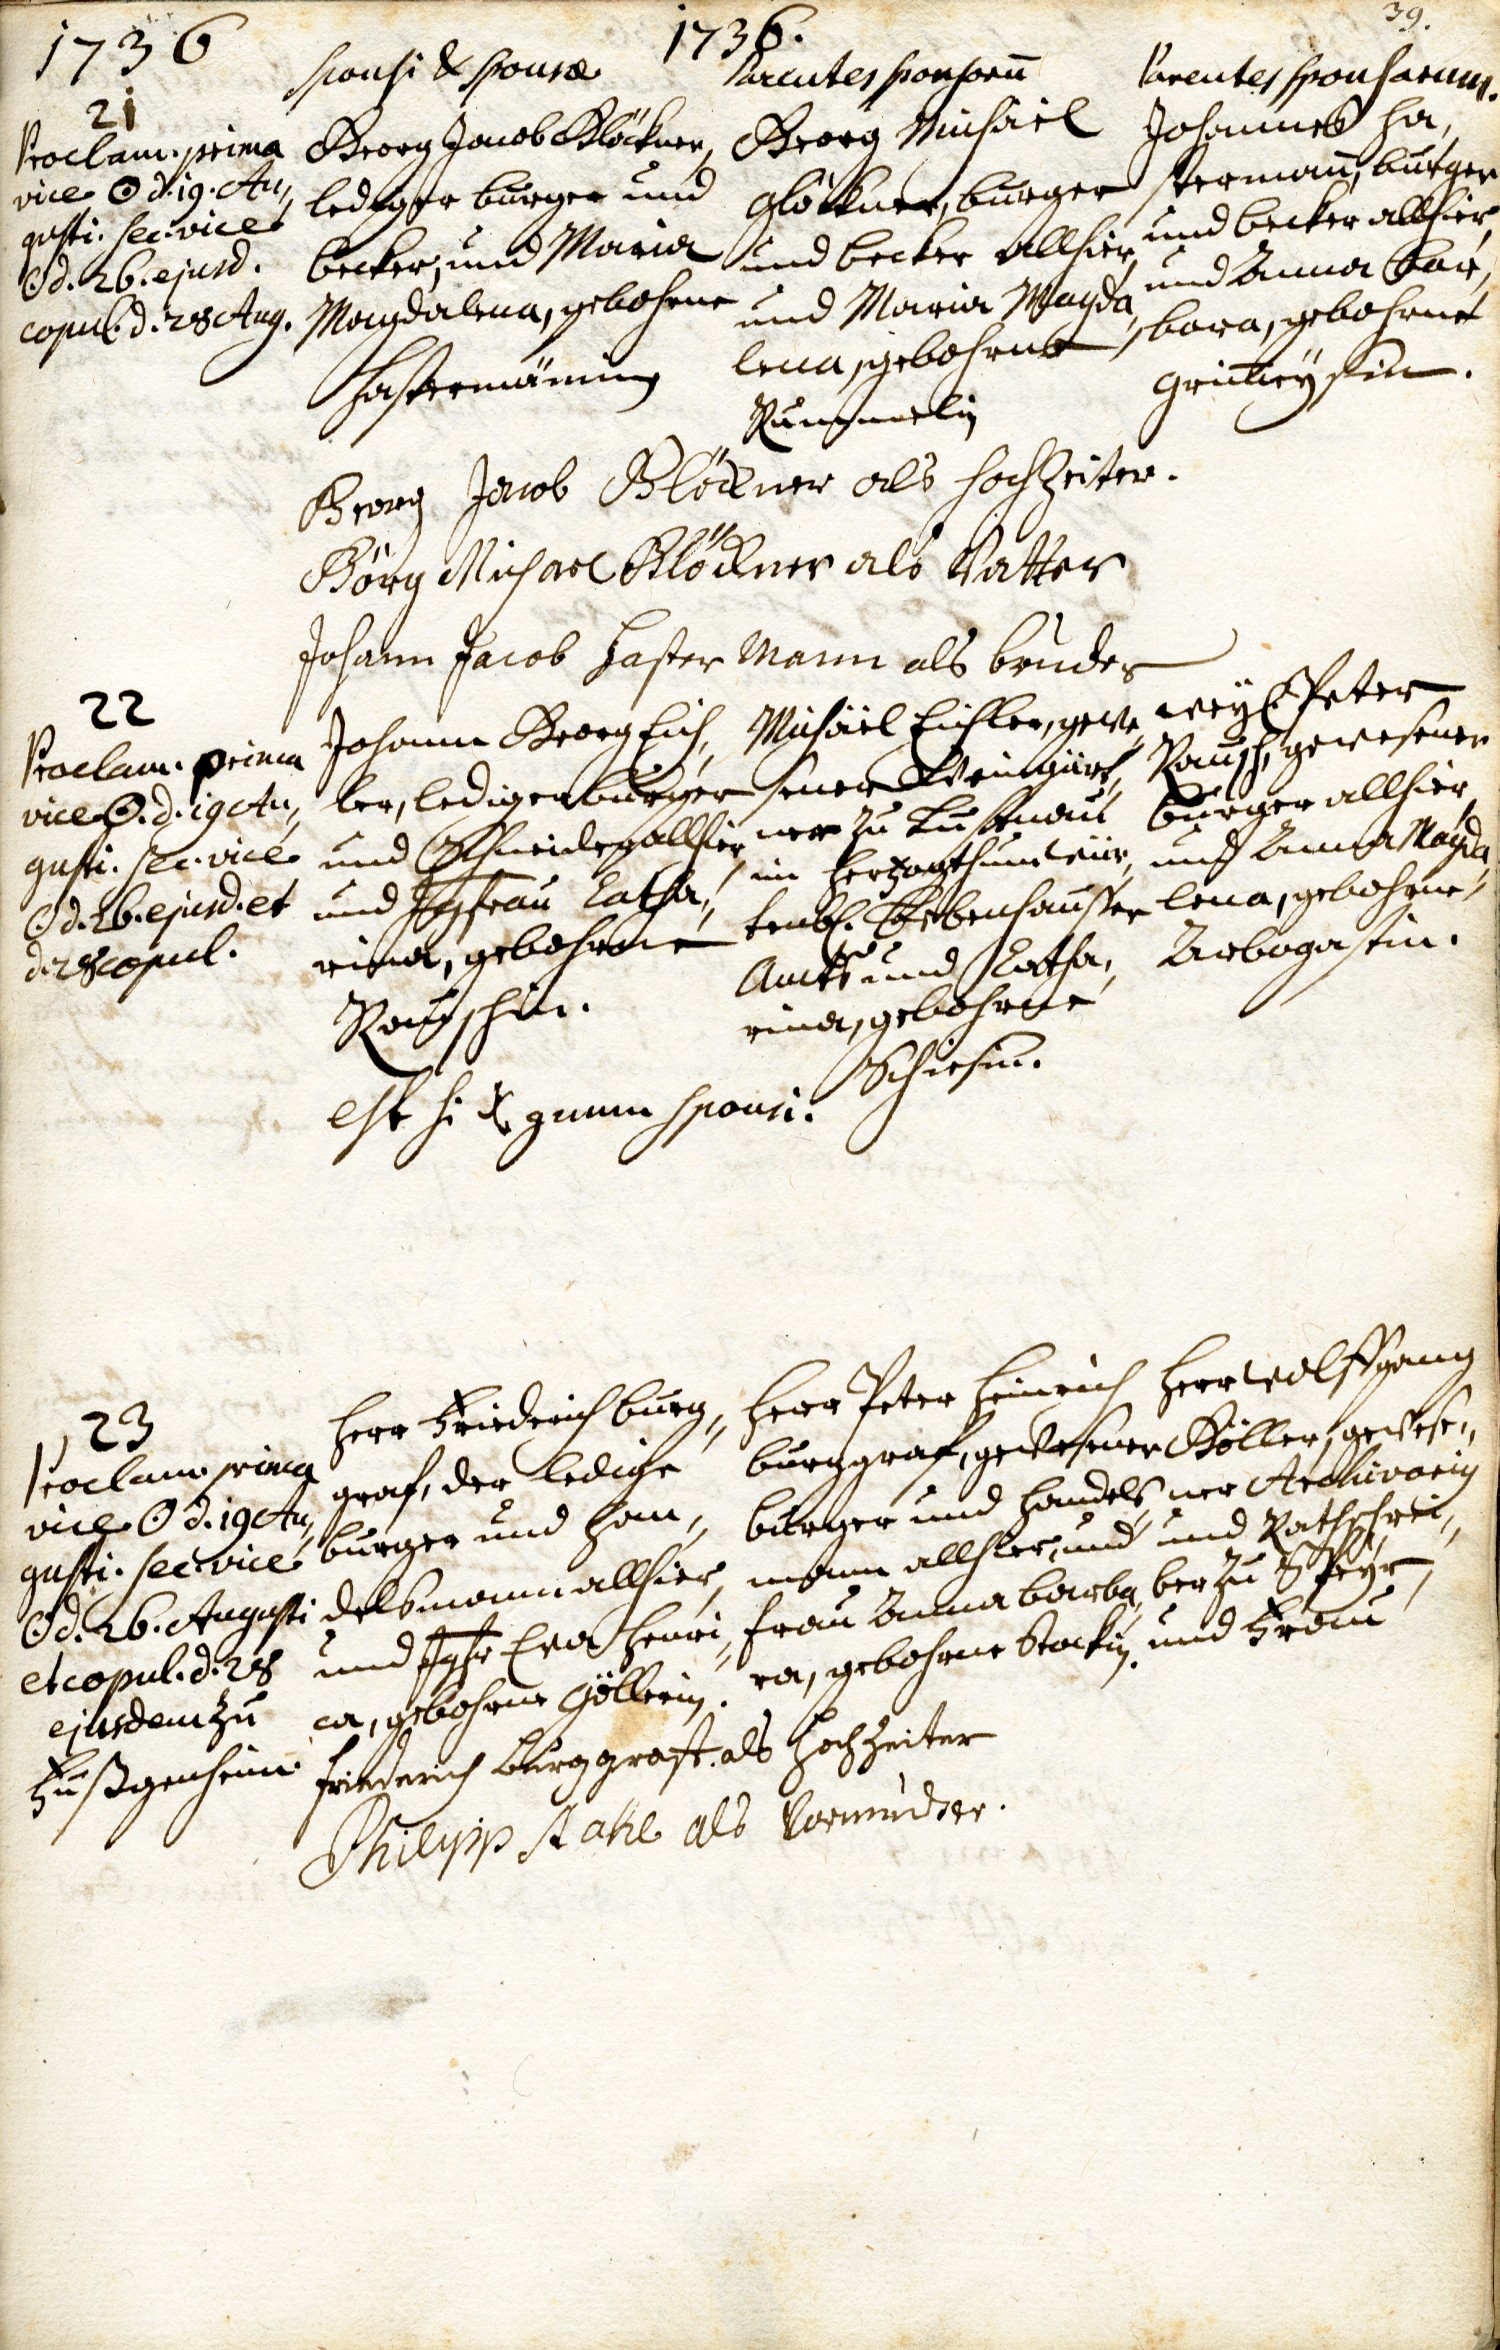 39.
1736
1736.
sponsi & sponsæ
Parentes sponsorū
Parentes sponsarum.
21
Proclam. prima
vice ☉ d. 19. Au,
gusti. sec. vice
☉ d. 26. ejusd.
copul. d. 28 Aug.
Georg Jacob Glöckner,
lediger burger und
becker, und Maria
Magdalena, gebohrne
Hastermännin
Georg Michäel
Glöckner, burger
und becker allhier,
und Maria Magda,
lena, gebohrne
Rummelin
Johannes Ha,
stermañ, burger
und becker allhier,
und Anna Bar,
bara, gebohrne
Georg Jacob Glöckner als hochzeiter.
Görg Michael Glöckner als Vatter
Johann Jacob Haster Mann als bruder
22
Proclam. prima
vice ☉. d. 19 Au,
gusti. sec. vice
☉ d. 26. ejusd. et
d. 28 copul.
Johann Georg Eich,
ler, lediger burger
und Schneider allhier
und Jgfrau Catha,
rina, gebohrne
Rauschin.
Michäel Eichler, gewe,
sener Weingärt,
ner zu Lustnau
im Herzogthum Wür,
tenb. Bebenhausser
Amts und Catha,
rina, gebohrne
Schiesin.
weyl. Peter
Rausch, gewesener
Burger allhier,
und Anna Magda,
lena, gebohrne
Arbogastin.
sponsi.
23
Proclam. prima
vice ☉ d. 19 Au,
gusti. sec. vice
☉ d. 26. Augusti
et copul. d. 28
ejusdem zu
Fußgenheim
Herr Friederich Burg,,
graf, der ledige
burger und Han,,
delsmann allhier,
und Jgfr Eva Henri,,
ca, gebohrne Göllerin.
Herr Peter Heinrich
Burggraf, gewesener
burger und handels,
mann allhier, und
Frau Anna Barba,
ra, gebohrne Stockin.
Herr Wolffgang
Göller, gewese,,
ner Archivarig
und Rathschrei,,
ber zu Speyr,
und Frau
friederich Burggraff. als Hochzeiter
Philipp Stahl als Vormünder.